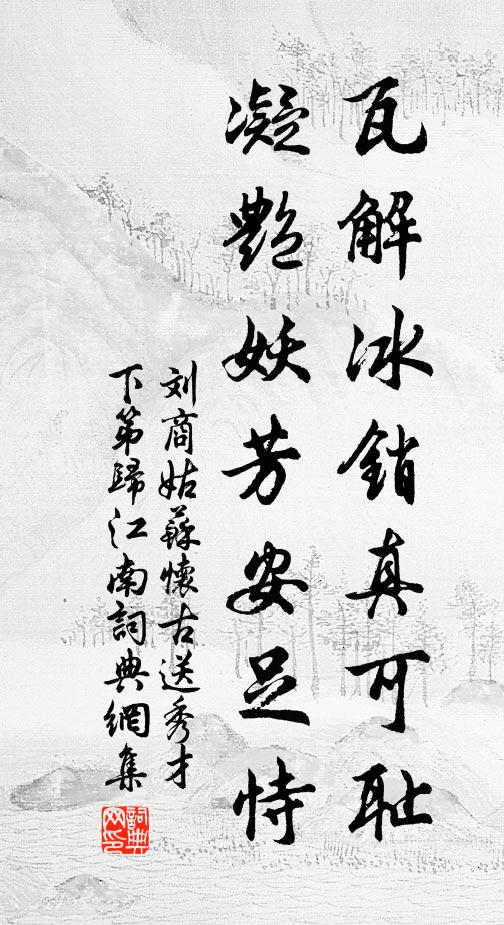 瓦解冰销真可耻
凝艳妖芳安足恃
刘商姑蘇懷古送秀才
下第歸江南詞典網集
詞典
网印